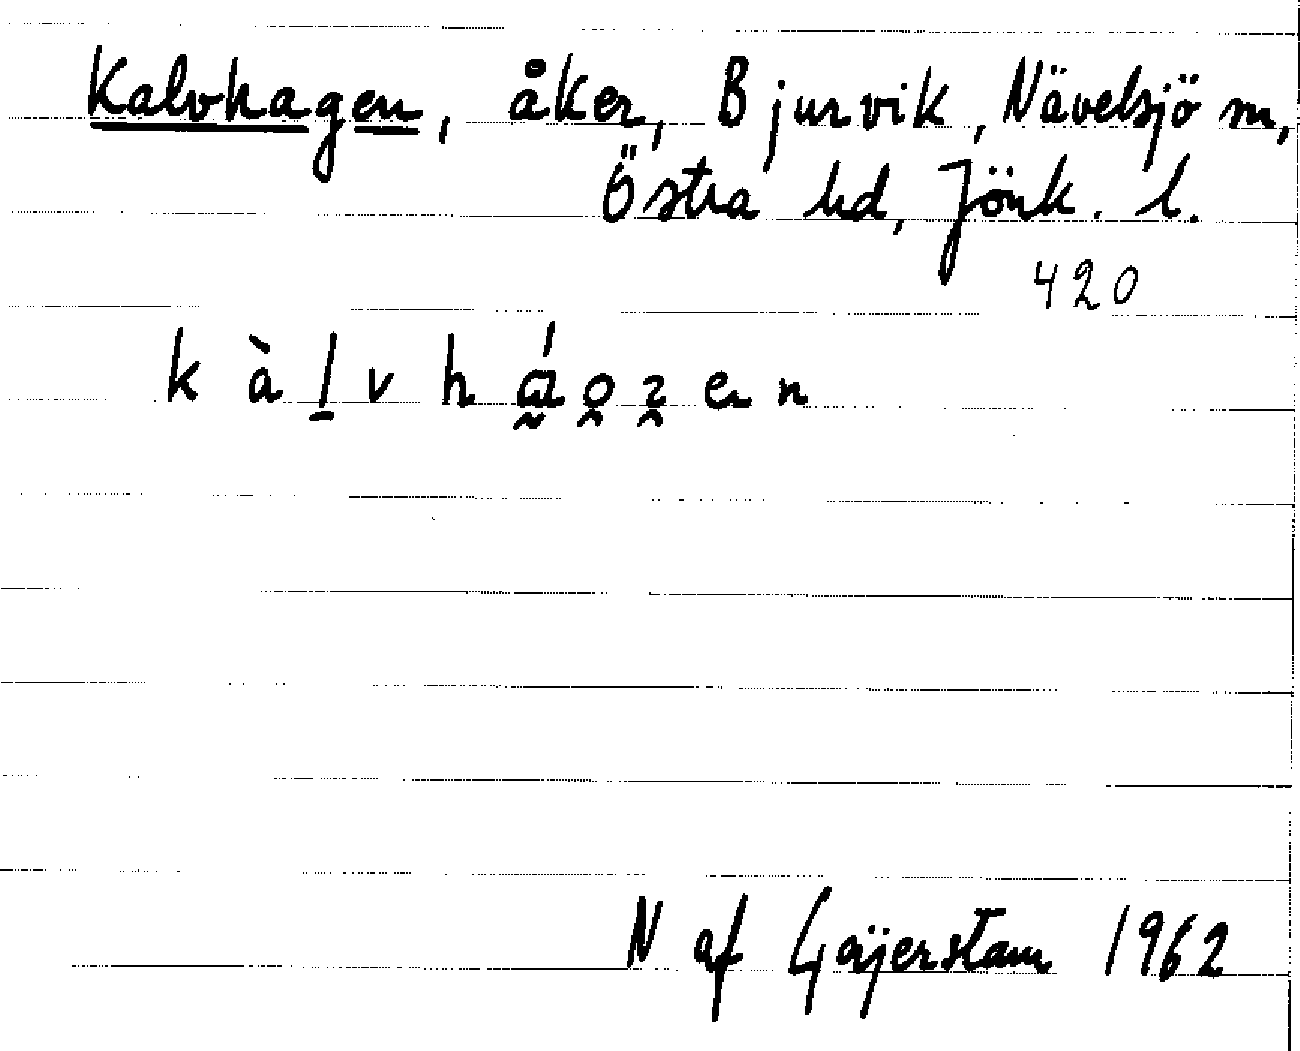 Kalvhagen, åker, Bjurvik, Nävelsjö sn,
Östra hd, Jönk. l.
420
k à l v h á o e n
N af Gäijerstam 1962